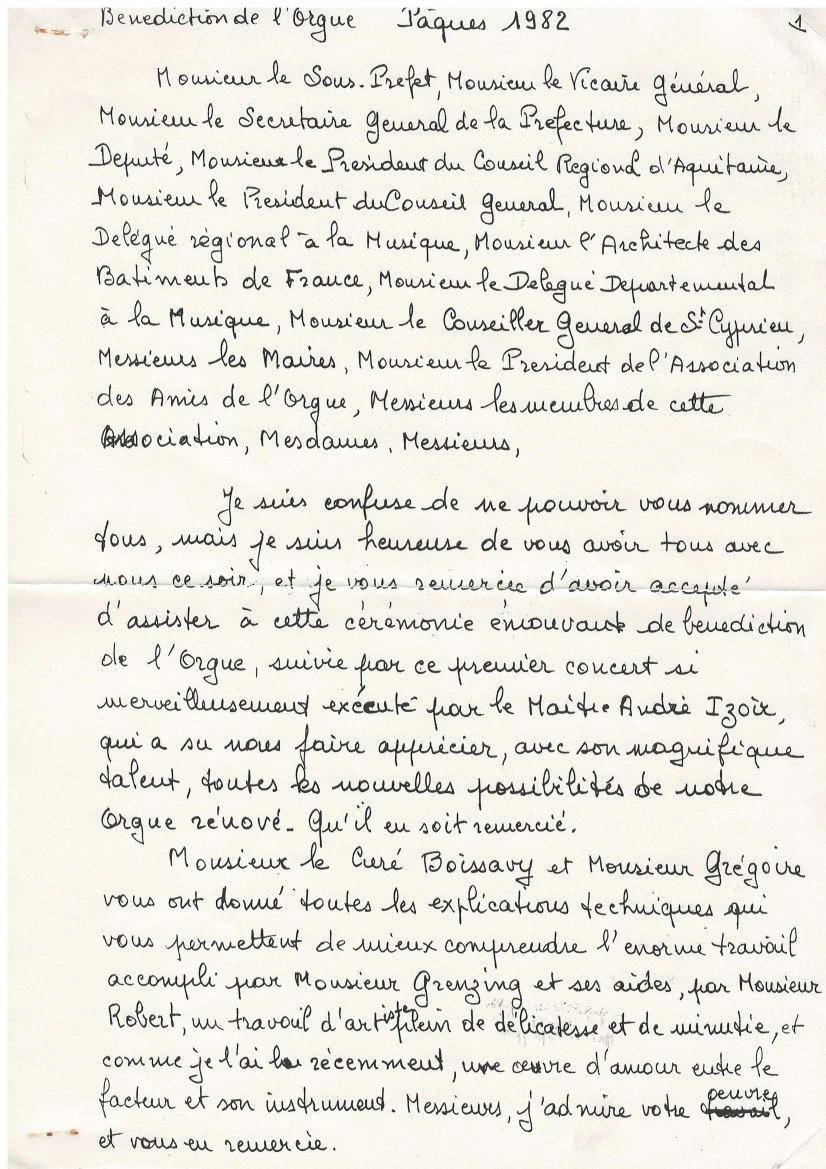 Benediction de l'Orgue Pâques 1982 1
Monsieur le Sous-Prefet, Monsieur le Vicaire Général,
Monsieur le Secretaire General de la Prefecture, Monsieur le
Deputé, Monsieur le President du Conseil Regional d'Aquitaine,
Monsieur le President du Conseil General, Monsieur le
Delégué régional à la Musique, Monsieur l'Architecte des
Batiments de France, Monsieur le Delegué Departemental
à la Musique, Monsieur le Conseiller General de St Cyprien,
Messieurs les Maires, Monsieur le President de l'Association
des Amis de l'Orgue, Messieurs les membres de cette
Association, Mesdames, Messieurs,
Je suis confuse de ne pouvoir vous nommer
tous, mais je suis heureuse de vous avoir tous avec
nous ce soir, et je vous remercie d'avoir accepté
d'assister à cette cérémonie émouvante de benediction
de l'Orgue, suivie par ce premier concert si
merveilleusement exécuté par le Maitre André Izoir,
qui a su nous faire apprécier, avec son magnifique
talent, toutes les nouvelles possibilités de notre
Orgue rénové. Qu'il en soit remercié.
Monsieur le Curé Boissavy et Monsieur Grégoire
vous ont donné toutes les explications techniques qui
vous permettent de mieux comprendre l'enorme travail
accompli par Monsieur Grenzing et ses aides, par Monsieur
Robert, un travail d'artiste plein de délicatesse et de minutie, et
comme je l'ai lu récemment, une œuvre d'amour entre le
facteur et son instrument. Messieurs, j'admire votre travail oeuvre,
et vous en remercie.